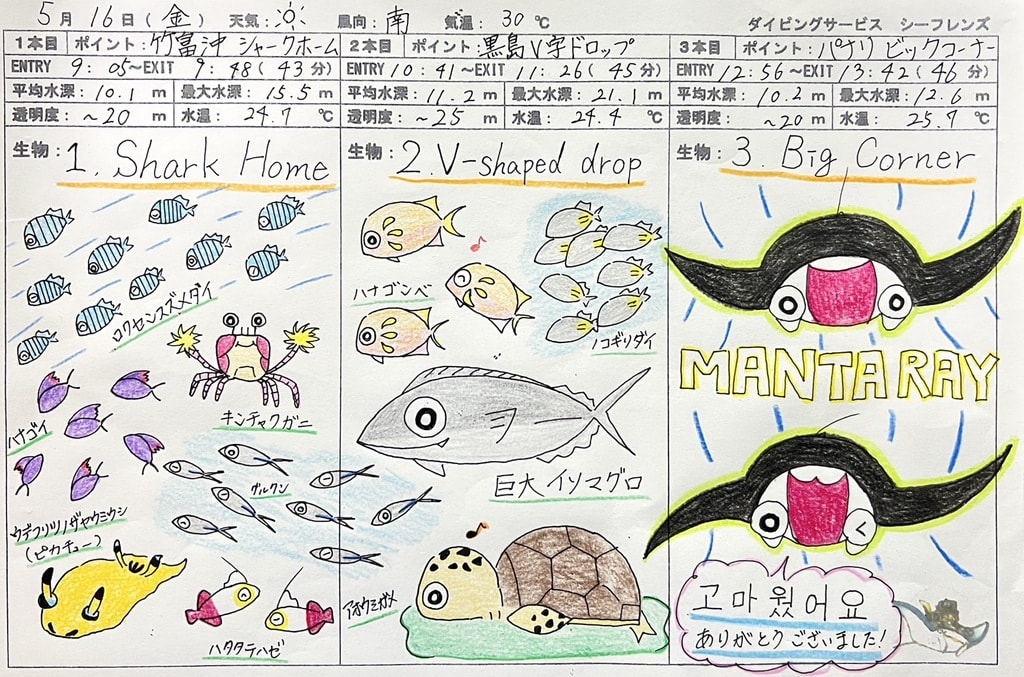 5月16日(金) 天気: 風向: 南 気温: 30℃ ダイビングサービス シーフレンズ
1本目 ポイント: 竹富沖 シャークホーム
ENTRY 9:05~EXIT 9:48(43分)
平均水深: 10.1 m 最大水深: 15.5 m
透明度: ~20 m 水温: 24.7 ℃
生物: 1. Shark Home
ロクセンスズメダイ
キンチャクガニ
ハナゴイ
グルクン
ウデフリツノザヤウミウシ
(ピカチュー)
ハタタテハゼ
2本目 ポイント: 黒島V字ドロップ
ENTRY 10:41~EXIT 11:26(45分)
平均水深: 11.2 m 最大水深: 21.1 m
透明度: ~25 m 水温: 24.4 ℃
生物: 2. V-shaped drop
ハナゴンベ
ノコギリダイ
巨大イソマグロ
アオウミガメ
3本目 ポイント: パナリ ビックコーナー
ENTRY 12:56~EXIT 13:42(46分)
平均水深: 10.2 m 最大水深: 12.6 m
透明度: ~20 m 水温: 25.7 ℃
生物: 3. Big Corner
MANTA RAY
고마웠어요
ありがとうございました!